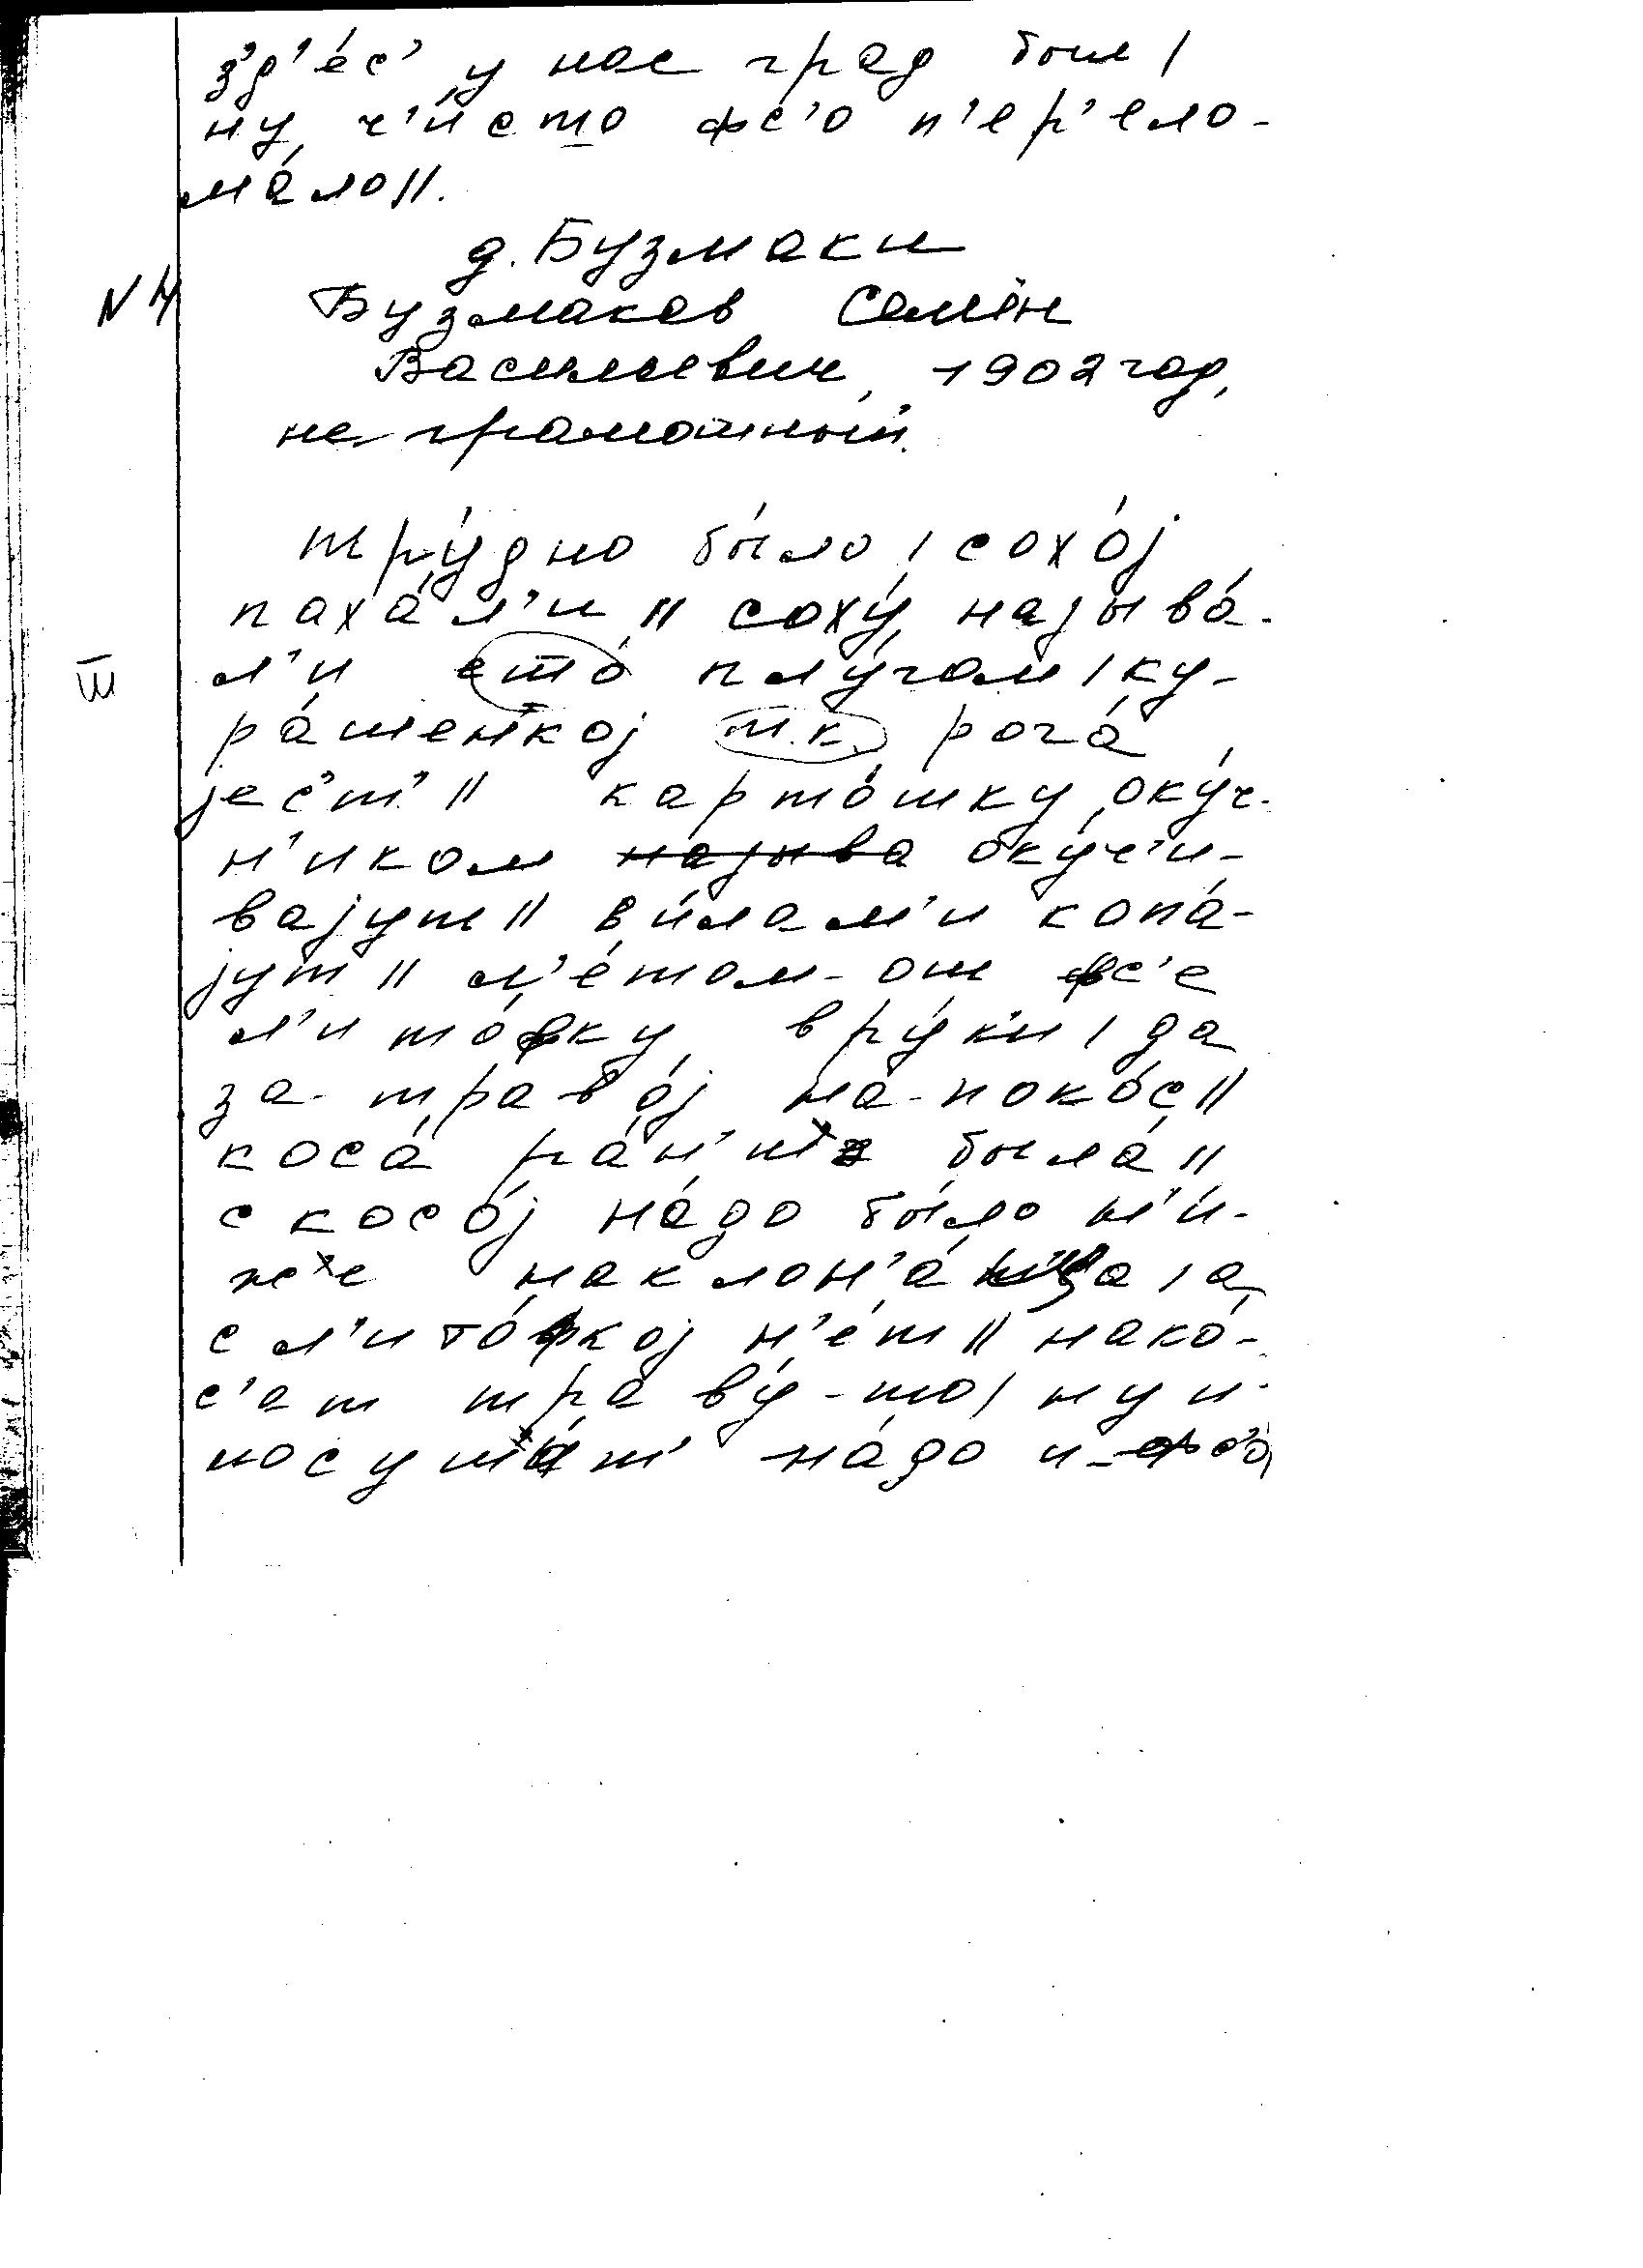 з'д'е́с' у нас град был /
ну, ч'и́сто фс'о п'ер'ело-
ма́ло //.
д. Бузмаки
N 4 Бузмаков Семён
Васильевич, 1902 год,
неграмотный.
тру́дно бы́ло / сохо́j
паха́л'и // соху́ наjыва́-
III л'и это́ плу́гом / ку-
ра́шенкоj т.к. рога́
jес'т' // карто́шку оку́ч-
н'иком наjыва оку́ч'и-
ваjут // ви́лам'и копа́-
jут // л'е́том-от фс'е
л'ито́фку в ру́к'и / да
за-траво́j на-поко́с //
коса́ ра́н'ше была́ //
с косо́j на́до бы́ло н'и́-
же наклон'а́ца / а
с л'ито́фкоj н'е́т // нако́-
с'ат траву́-то / ну и
посуши́т' на́до и-фс'о́